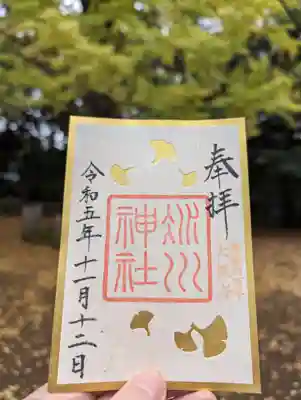 奉拝
氷川
神社
令和五年十一月十二日